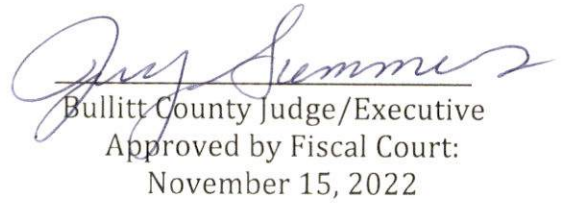 Jerry Summers
Bullitt County Judge/Executive
Approved by Fiscal Court:
November 15, 2022